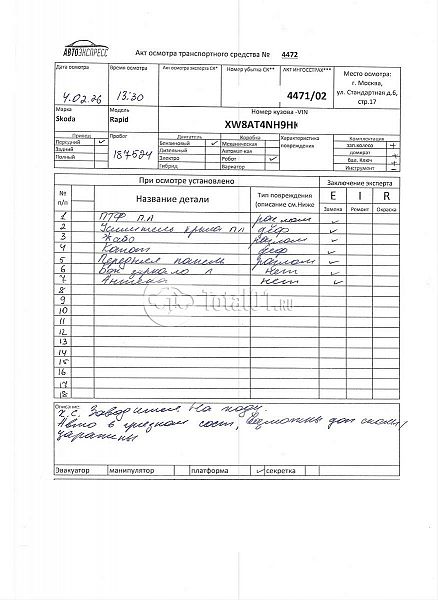 АВТОЭКСПРЕСС
Акт осмотра транспортного средства № 4472
Дата осмотра Время осмотра Акт осмотра эксперта СК* Номер убытка СК** АКТ ИНГОССТРАХ***
Место осмотра:
г. Москва,
ул. Стандартная д.6,
стр.17
4.02.26 13:30 4471/02
Марка Модель Номер кузова -VIN
Skoda Rapid XW8AT4NH9HK
Привод Пробег Двигатель Коробка Характеристика повреждения Комплектация
Передний ✓ Бензиновый ✓ Механическая зап.колесо +
Задний 187594 Дизельный Автомат-кая домкрат +
Полный Электро Робот ✓ бал. Ключ +
Гибрид Вариатор Инструмент -
При осмотре установлено Заключение эксперта
№ п/п Название детали Тип повреждения (описание см.Ниже E I R
Замена Ремонт Окраска
1 ПТФ п.л разлом ✓
2 Усилитель крыла п л деф ✓
3 Жабо разлом ✓
4 Капот деф ✓
5 Передняя панель разлом ✓
6 Бок зеркало л нет ✓
7 Антенна нет ✓
8
9
10
11
12
13
14
15
16
17
18
Total01.ru
Описание:
т.с. Заводится На ходу.
Авто в грязном сост, Возможны доп сколы/
царапины
Эвакуатор манипулятор платформа ✓ секретка